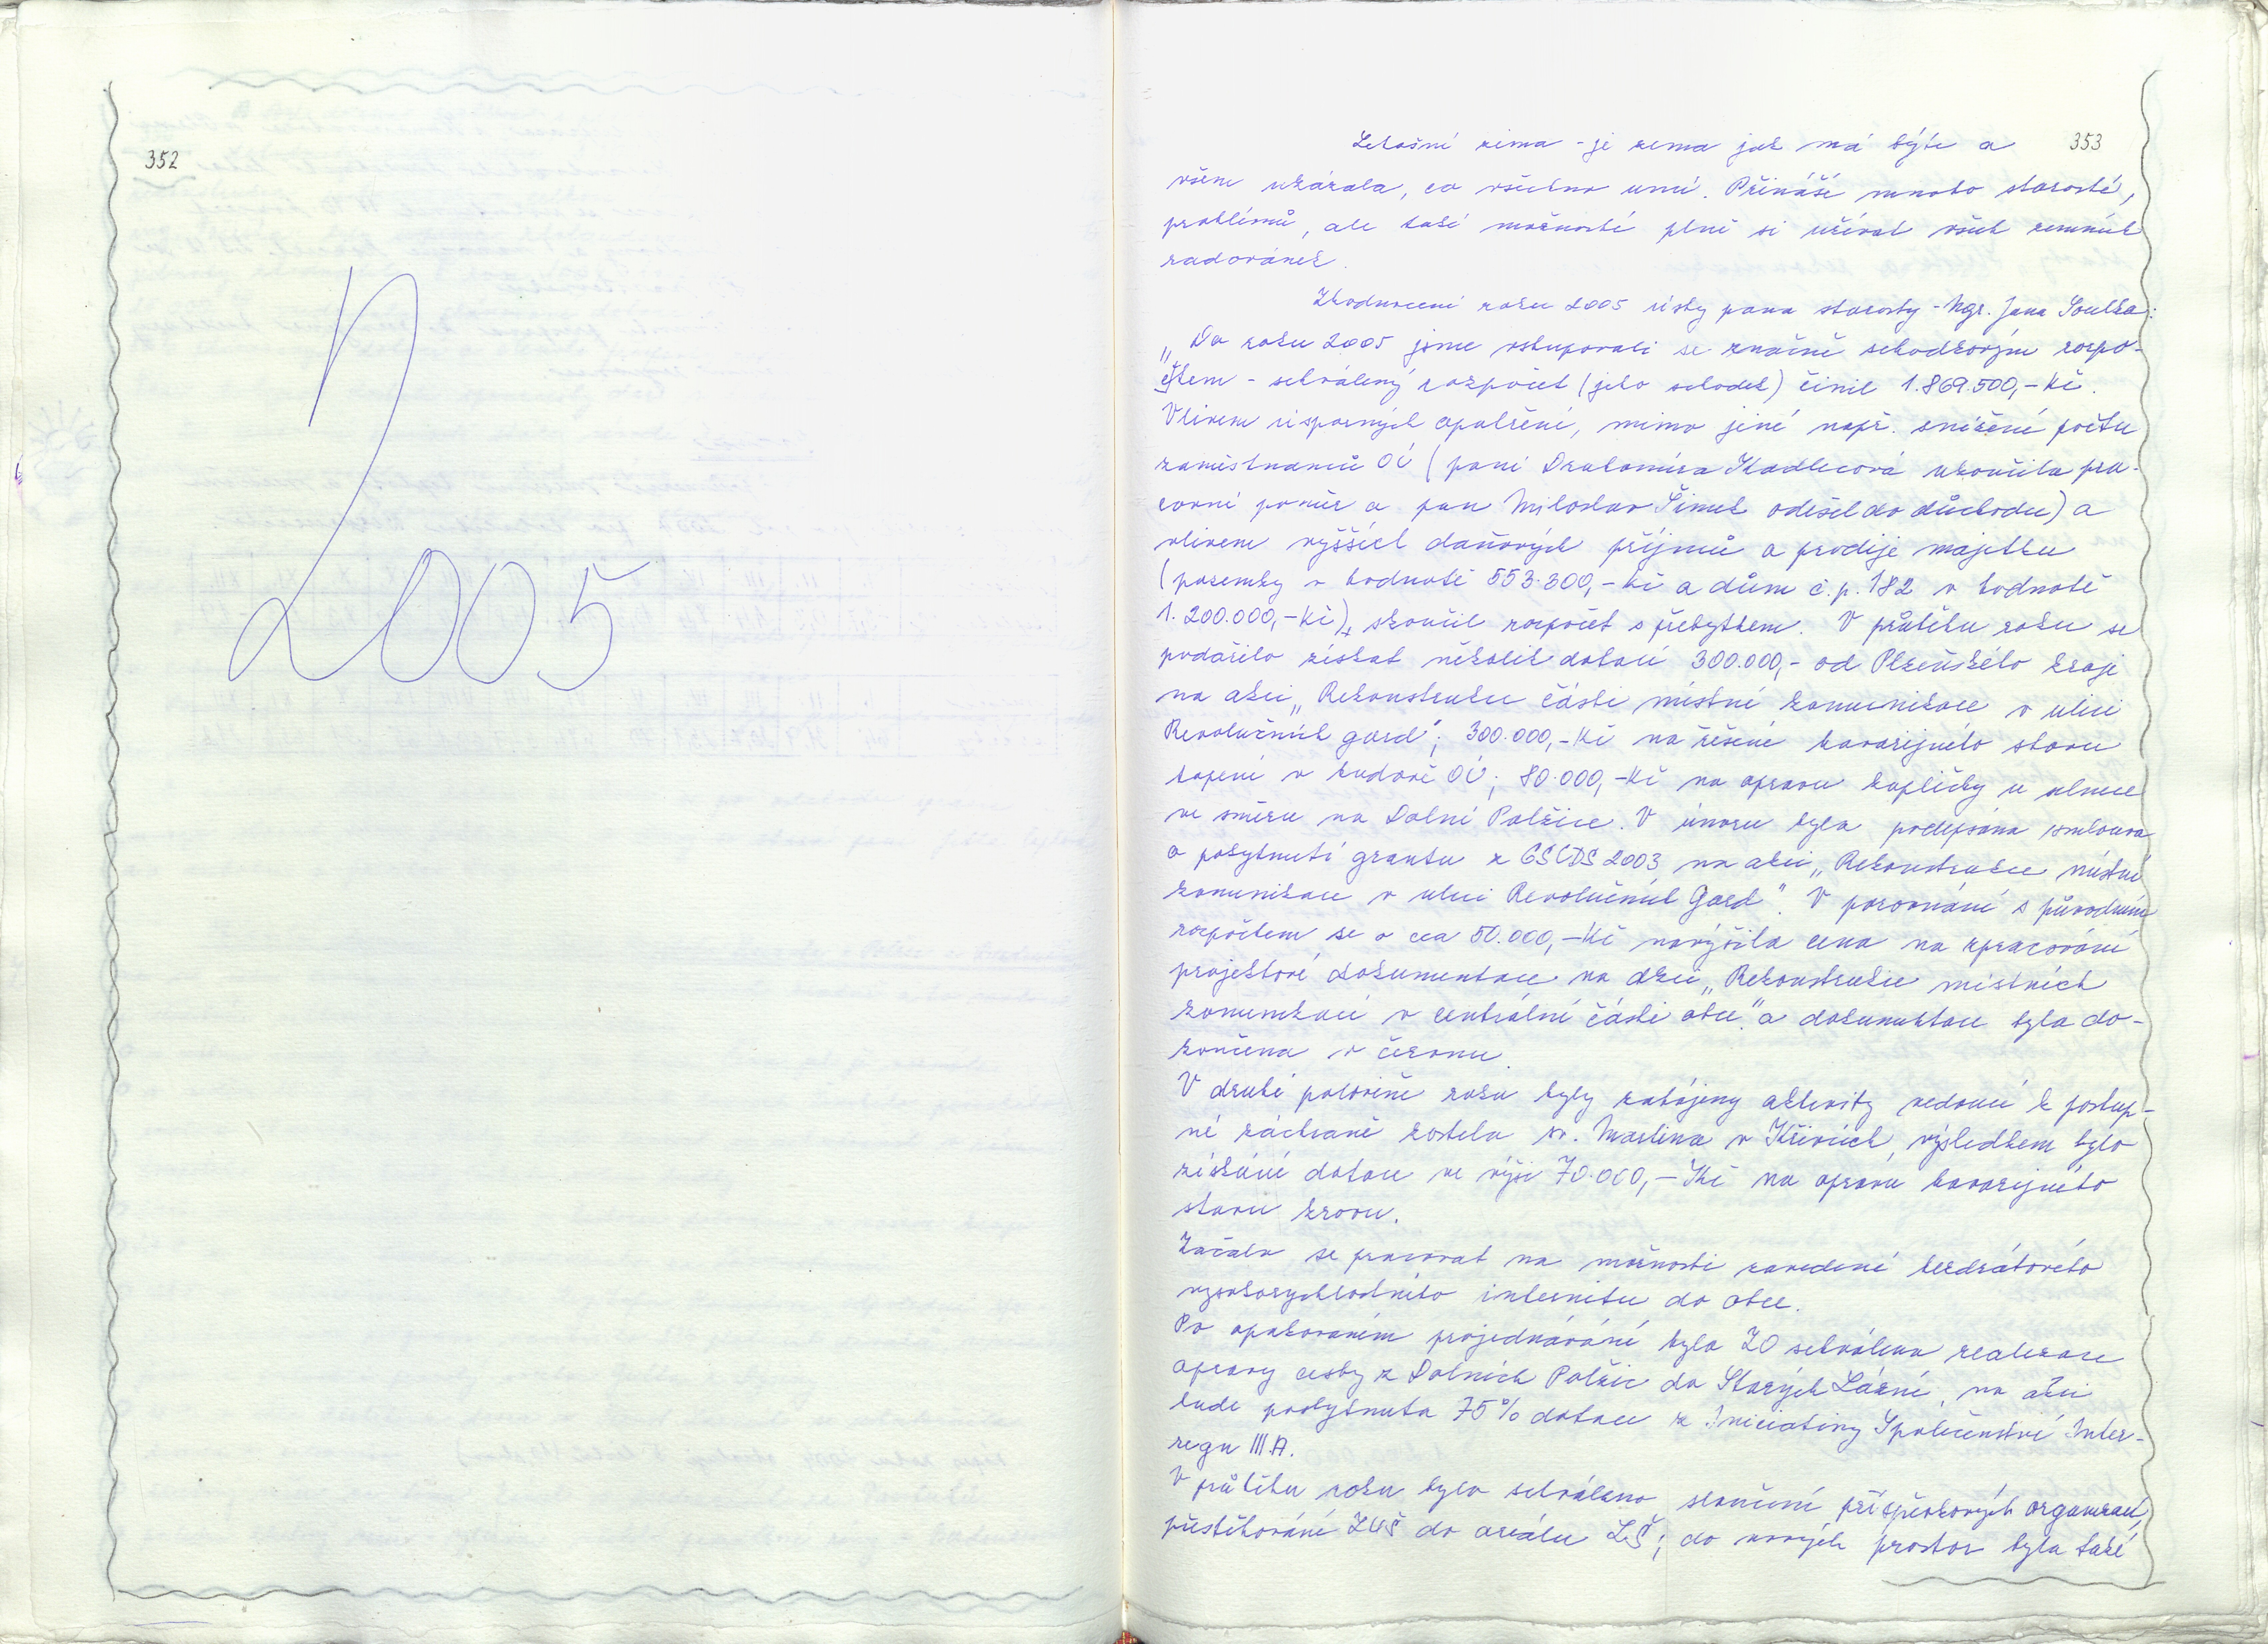 352
R
2005
353
Letošní zima - je zima jak má býti a
všem ukázala, co všechno umí. Přináší mnoho starostí,
problémů, ale také možnosti plně si užívat všech zimních
radovánek.
Zhodnocení roku 2005 ústy pana starosty - Mgr. Jana Soulka:
„Do roku 2005 jsme vstupovali se značně schodkovým rozpo-
čtem - schválený rozpočet (jeho schodek) činil 1.869.500,- Kč.
Vlivem úsporných opatření, mimo jiné např. snížení počtu
zaměstnanců OÚ (paní Drahomíra Kadlecová ukončila pra-
covní poměr a pan Miloslav Šimek odešel do důchodu) a
vlivem vyšších daňových příjmů a prodeje majetku
(pozemky v hodnotě 553.300,- Kč a dům č.p. 182 v hodnotě
1.200.000,- Kč), skončil rozpočet s přebytkem. V průběhu roku se
podařilo získat několik dotací 300.000,- od Plzeňského kraje
na akci „Rekonstrukce části místní komunikace v ulici
Revolučních gard"; 300.000,- Kč na řešení havarijního stavu
topení v budově OÚ; 80.000,- Kč na opravu kapličky u silnice
ve směru na Dolní Polžice. V únoru byla podepsána smlouva
o poskytnutí grantu z GSCDS 2003 na akci „Rekonstrukce místní
komunikace v ulici Revolučních Gard". V porovnání s původním
rozpočtem se o cca 50.000,- Kč navýšila cena na zpracování
projektové dokumentace na akci „Rekonstrukce místních
komunikací v centrální části obce" a dokumentace byla do-
končena v červnu.
V druhé polovině roku byly zahájeny aktivity vedoucí k postup-
né záchraně kostela sv. Martina v Křivicích, výsledkem bylo
získání dotace ve výši 70.000,- Kč na opravu havarijního
stavu krovu.
Začalo se pracovat na možnosti zavedení bezdrátového
vysokorychlostního internetu do obce.
Po opakovaném projednávání byla ZO schválena realizace
opravy cesty z Dolních Polžic do Starých Lázní, na akci
bude poskytnuta 75% dotace z Iniciativy Společenství Inter-
regu III.A.
V průběhu roku bylo schváleno sloučení příspěvkových organizací,
přestěhování ZUŠ do areálu ZŠ; do nových prostor byla také